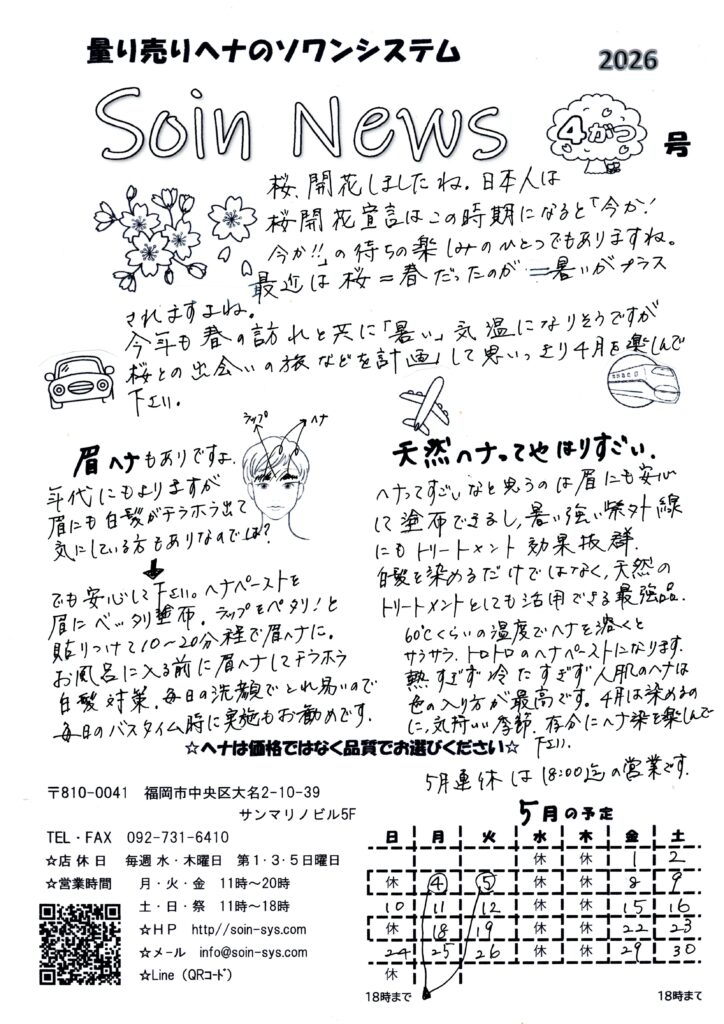 量り売りヘナのソワンシステム
2026
Soin News
4がつ
号
桜、開花しましたね。日本人は
桜開花宣言はこの時期になると「今か!
今か!!」の待ちの楽しみのひとつでもありますね。
最近は桜=春だったのが=暑いがプラス
されますよね。
今年も春の訪れと共に「暑い」気温になりそうですが
桜との出会いの旅などを計画」して思いっきり4月を楽しんで
下さい。
ラップ
ヘナ
眉ヘナもありですよ.
年代にもよりますが
眉にも白髪がチラホラ出て
気にしている方もありなのでは?
でも安心して下さい。ヘナペーストを
眉にベッタリ塗布。ラップをペタリ!と
貼りつけて10〜20分程で眉ヘナに。
お風呂に入る前に眉ヘナしてチラホラ
白髪対策。毎日の洗顔でとれ易いので
毎日のバスタイム時に実施もお勧めです.
天然ヘナってやはりすごい.
ヘナってすごいなと思うのは眉にも安心
して塗布できるし,暑い強い紫外線
にもトリートメント効果抜群.
白髪を染めるだけではなく,天然の
トリートメントとしても活用できる最強品.
60℃くらいの温度でヘナを溶くと
サラサラ.トロトロのヘナペーストになります.
熱すぎず冷たすぎず人肌のヘナは
色の入り方が最高です。4月は染めるの
に,気持いい季節.存分にヘナ染を楽しんで
下さい.
☆ヘナは価格ではなく品質でお選びください☆
5月連休は18:00迄の営業です.
〒810-0041 福岡市中央区大名2-10-39
サンマリノビル5F
TEL・FAX 092-731-6410
☆店休日 毎週水・木曜日 第1・3・5日曜日
☆営業時間 月・火・金 11時〜20時
土・日・祭 11時〜18時
☆HP http//soin-sys.com
☆メール info@soin-sys.com
☆Line(QRコード)
5月の予定
日 月 火 水 木 金 土
休 休 1 2
休 4 5 休 休 8 9
10 11 12 休 休 15 16
休 18 19 休 休 22 23
24 25 26 休 休 29 30
休
18時まで 18時まで